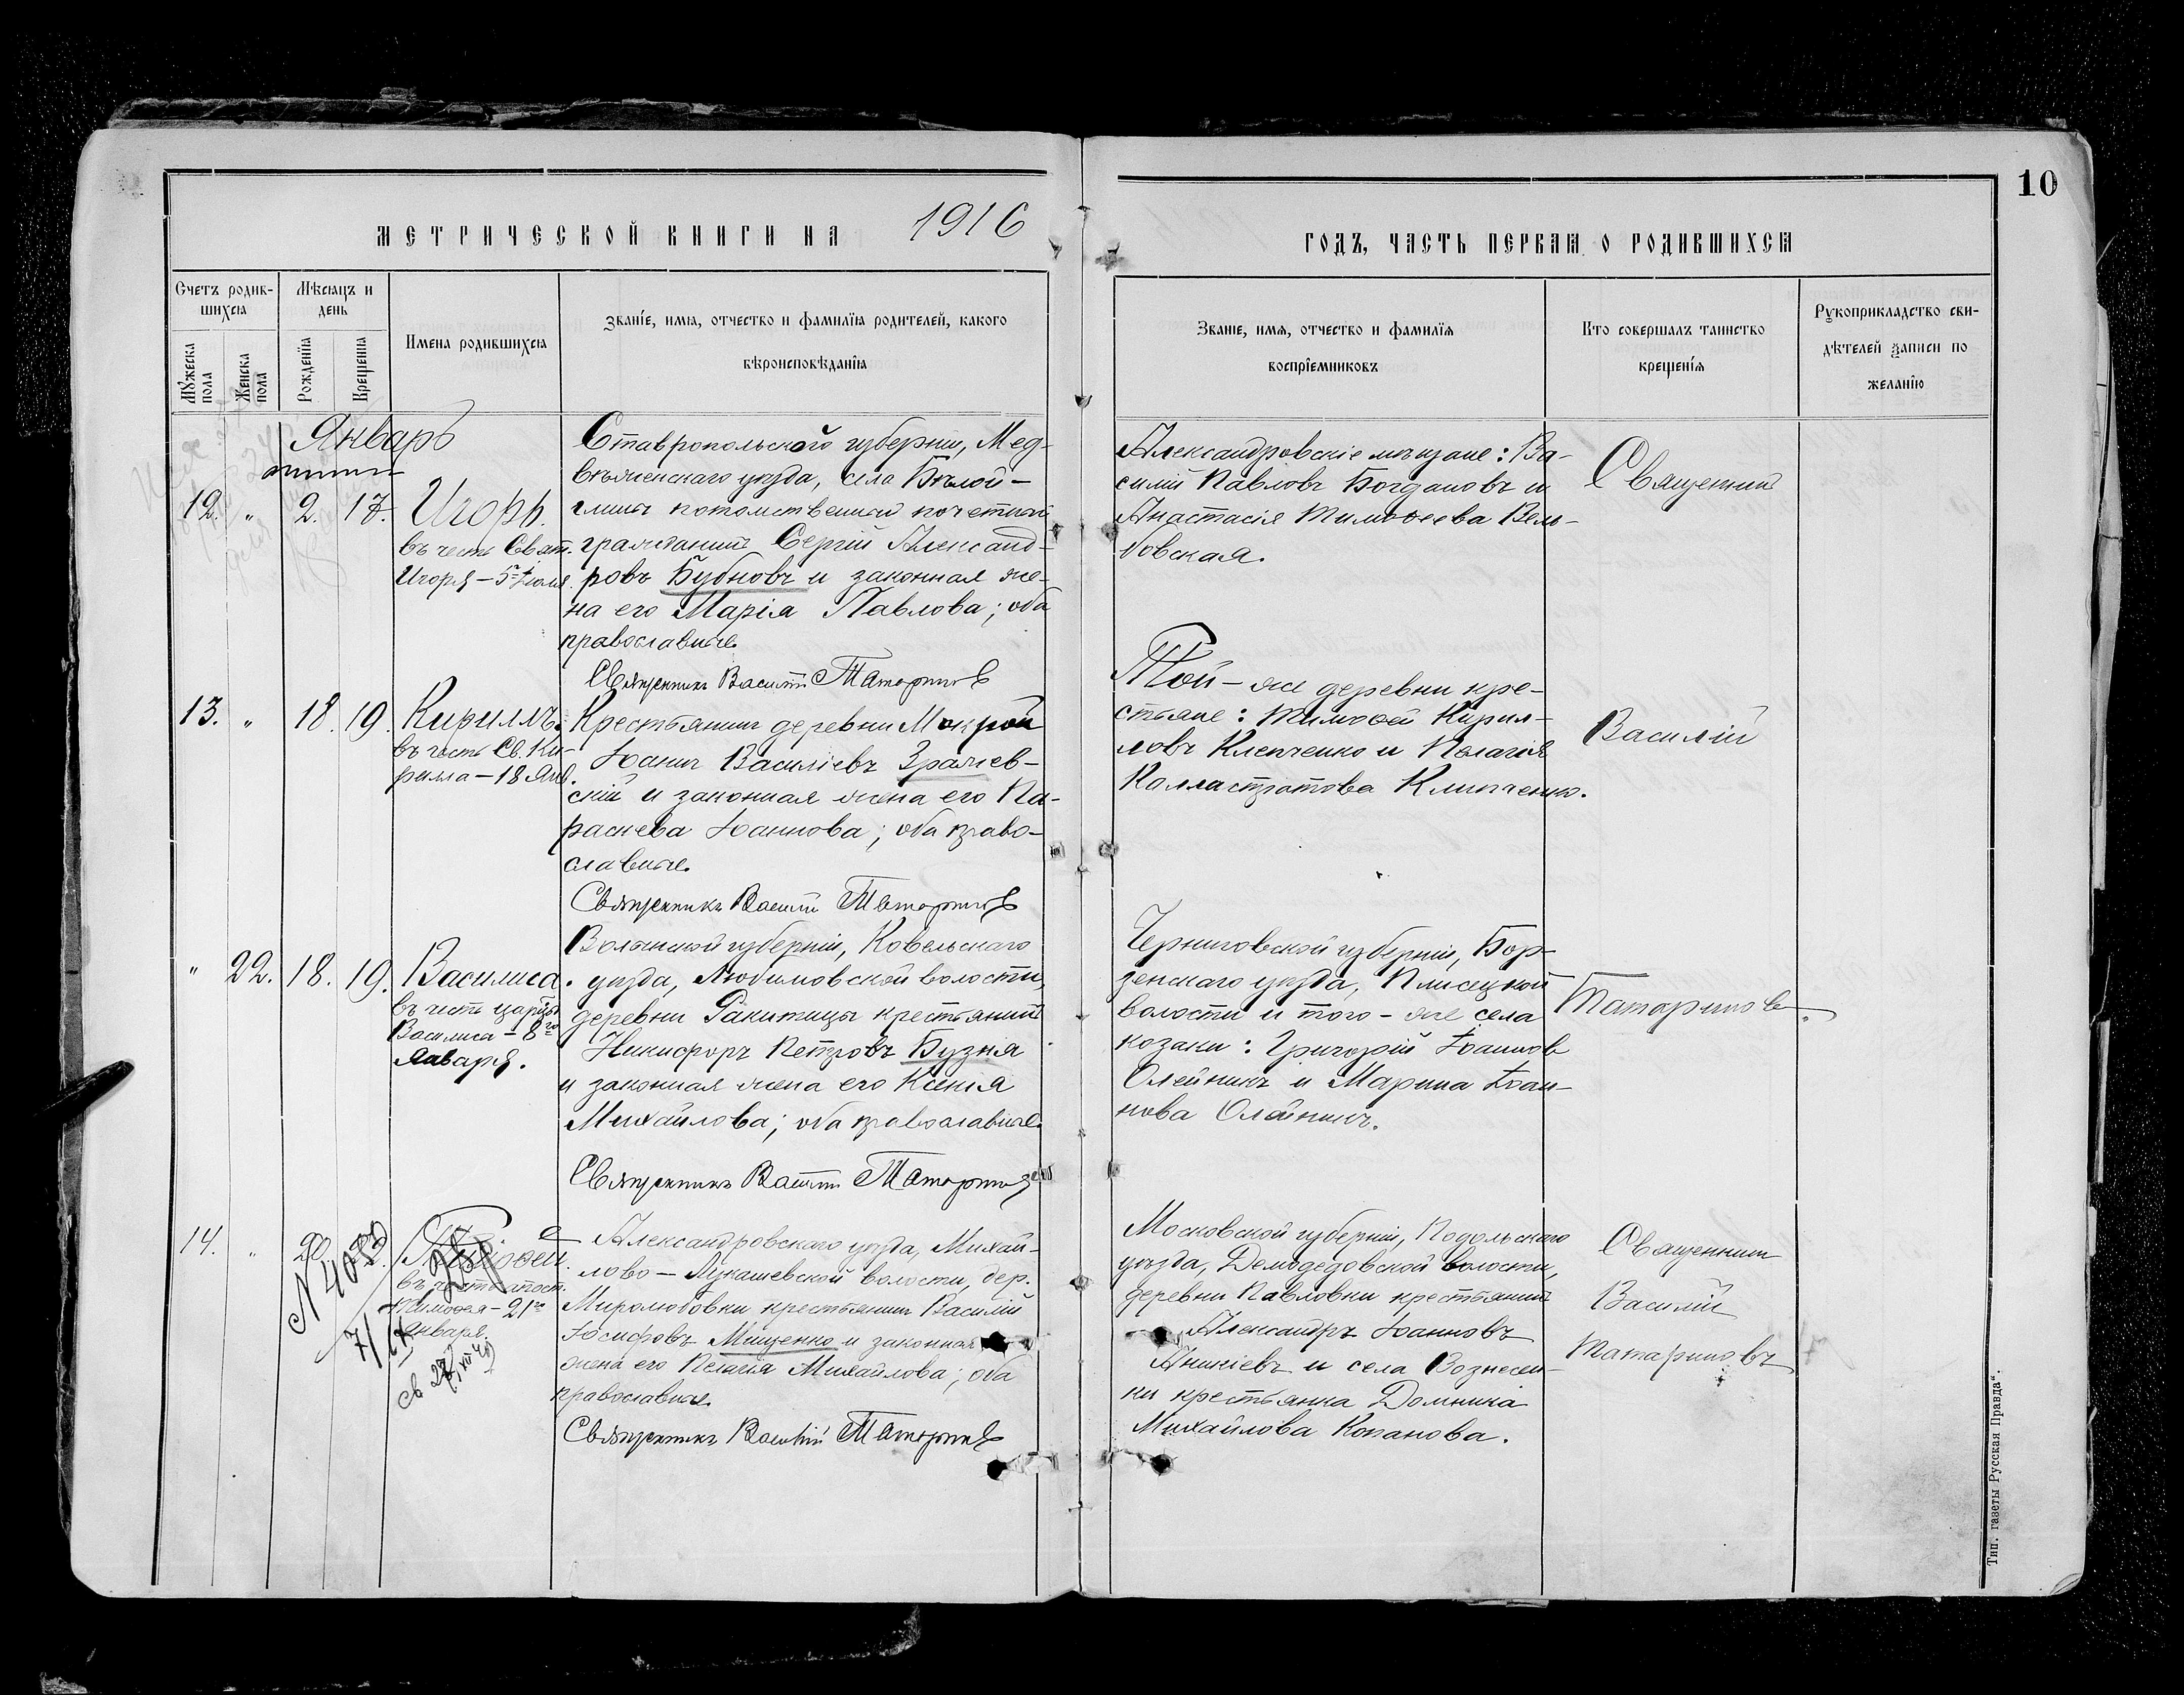 10
МЕТРИЧЕСКОЙ КНИГИ НА 1916
ГОДЪ, ЧАСТЬ ПЕРВАЯ, О РОДИВШИХСЯ
Счетъ родив-
шихся
Мужеска пола
Женска пола
Мѣсяцъ и
день
Рожденія
Крещенія
Имена родившихся
Званіе, имя, отчество и фамилія родителей, какого
вѣроисповѣданія
Званіе, имя, отчество и фамилія
воспріемниковъ
Кто совершалъ таинство
крещенія
Рукоприкладство сви-
дѣтелей записи по
желанію
Январь
12. " 2. 17. Игорь.
въ честь Св.
Игоря – 5 Іюня.
Ставропольскаго губерніи, Мед-
вѣженскаго уѣзда, села Бѣлой-
глины потомственный почетный
гражданинъ Сергій Александ-
ровъ Бубновъ и законная же-
на его Марія Павлова; оба
православные.
Священникъ Василій Татариновъ
Александровскіе мѣщане: Ва-
силій Павловъ Богдановъ и
Анастасія Тимоѳеева Вель-
бовская.
Священникъ
13. " 18. 19. Кириллъ.
въ честь Св. Ки-
рилла – 18 Янв.
Крестьянинъ деревни Мокрой
Іоаннъ Василіевъ Зражев-
скій и законная жена его Па-
раскева Іоаннова; оба право-
славные.
Священникъ Василій Татариновъ
Той-же деревни кре-
стьяне: Тимоѳей Кирил-
ловъ Клепченко и Пелагія
Каллистратова Клипченко.
Василій
" 22. 18. 19. Василиса.
въ честь
Василиса – 8го
Января.
Волынской губерніи, Ковельскаго
уѣзда, Любитовской волости,
деревни Ракитницы крестьянинъ
Никифоръ Петровъ Бузня
и законная жена его Ксенія
Михайлова; оба православные.
Священникъ Василій Татариновъ
Черниговской губерніи, Бор-
зенскаго уѣзда, Плисецкой
волости и того-же села
козаки: Григорій Іоанновъ
Олейникъ и Марина Іоан-
нова Олейникъ.
Татариновъ.
14. " 20. Тимоѳей.
въ честь апост.
Тимоѳея – 21го
Января.
N 4083
Александровскаго уѣзда, Михай-
лово-Лукашевской волости, дер.
Миролюбовки крестьянинъ Василій
Іосифовъ Мищенко и законная
жена его Пелагія Михайлова; оба
православные.
Священникъ Василій Татариновъ
Московской губерніи, Подольскаго
уѣзда, Демодедовской волости,
деревни Павловки крестьянинъ
Александръ Іоанновъ
Аникіевъ и села Вознесен-
ки крестьянка Домникія
Михайлова Копанова.
Священникъ
Василій
Татариновъ
Тип. газеты „Русская Правда“.